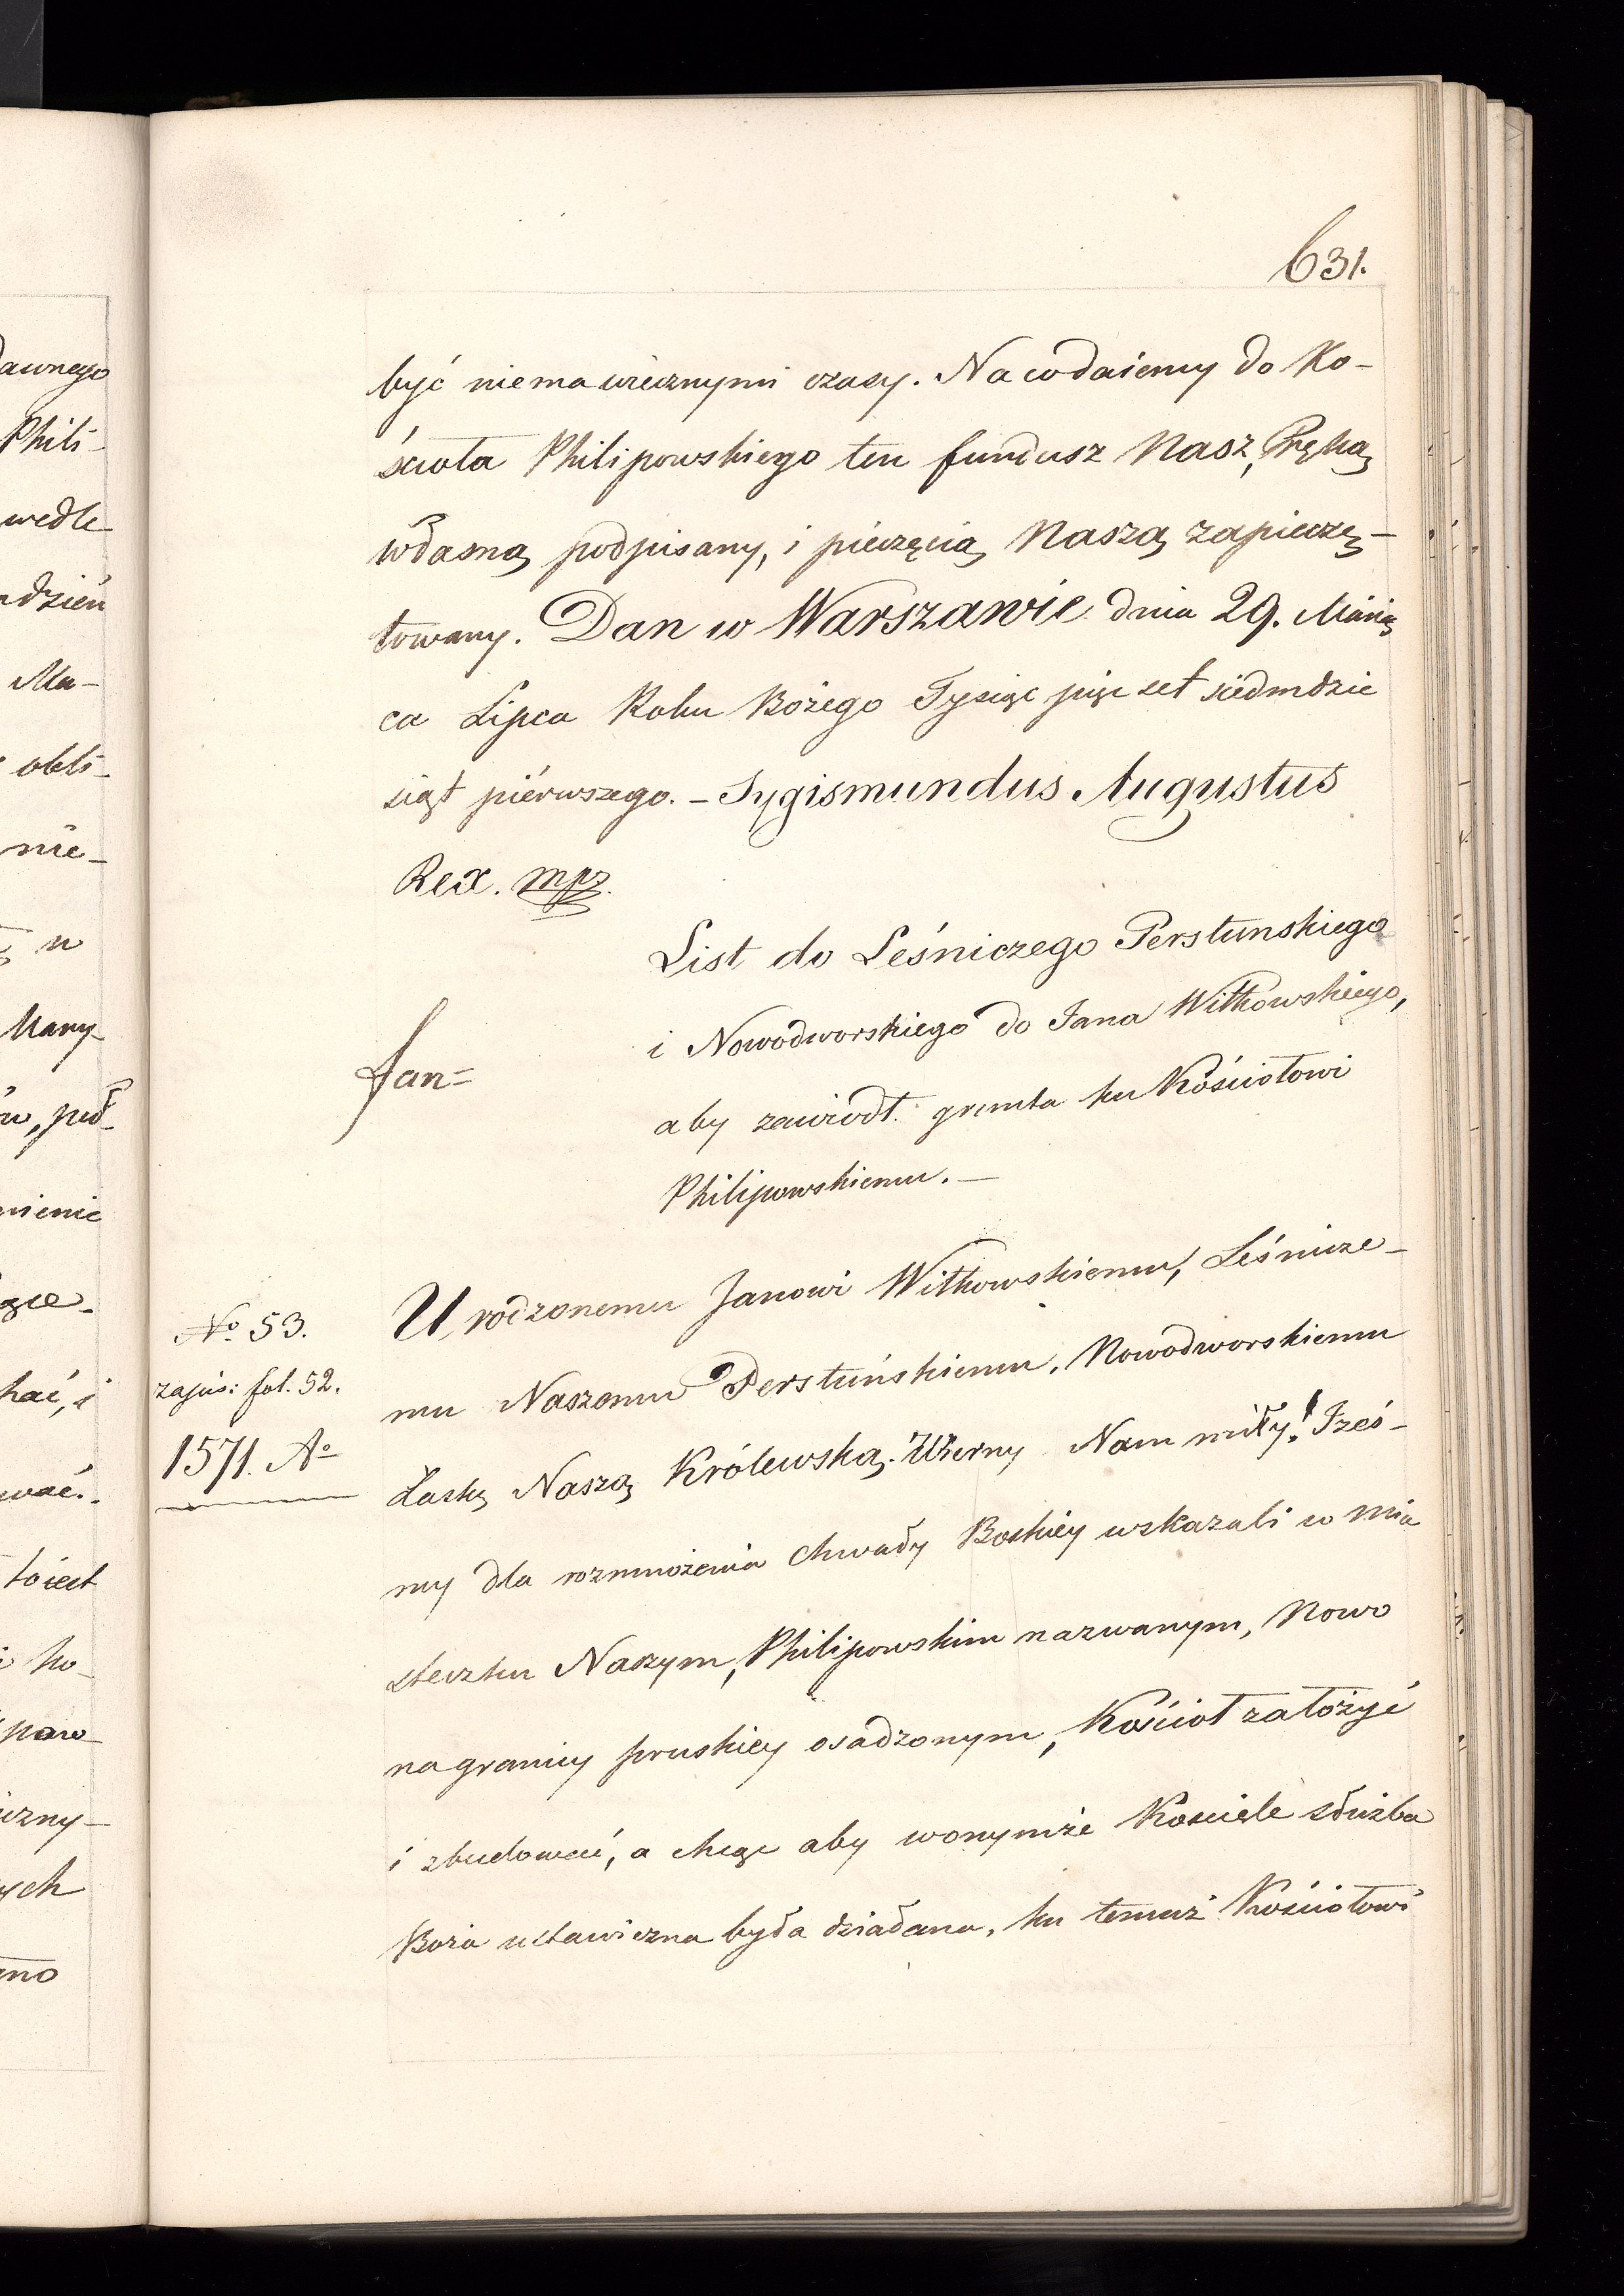 631.
być niema wiecznymi czasy. Na co daiemy do Ko-
ścioła Philipowskiego ten fundusz Nasz, Ręką
własną podpisany, i pieczęcią Naszą zapieczę-
towany. Dan w Warszawie dnia 29. Miesią
ca Lipca Roku Bożego Tysiąc pięc set siedmdzie
siąt piérwszego. - Sygismundus Augustus
Rex. mpr.
List do Leśniczego Perstunskiego
i Nowodworskiego do Jana Witkowskiego,
fan=
aby zawiodł grunta ku Kościołowi
Philipowskiemu. -
Urodzonemu Janowi Witkowskiemu, Leśnicze-
No. 53.
mu Naszemu Perstuńskiemu, Nowodworskiemu
zapis: fol. 52.
Łaskę Naszą Królewską. Wierny Nam miły! Iześ-
1571. Ao
my dla rozmnożenia chwały Boskiey wskazali w Mia
steczku Naszym, Philipowskim nazwanym, Nowo
na granicy pruskiey osadzonym, Kościoł założyć
i zbudować, a chcąc aby wonymże Kościele służba
Boża ustawiczna była działana, ku temuż Kościołowi
dawnego
Phili-
wedle
dzień
Ma-
obli-
nie-
u
Mary-
pod-
mienie
hać, i
wać.
to iest
ko-
paro-
iczny-
ych
ano